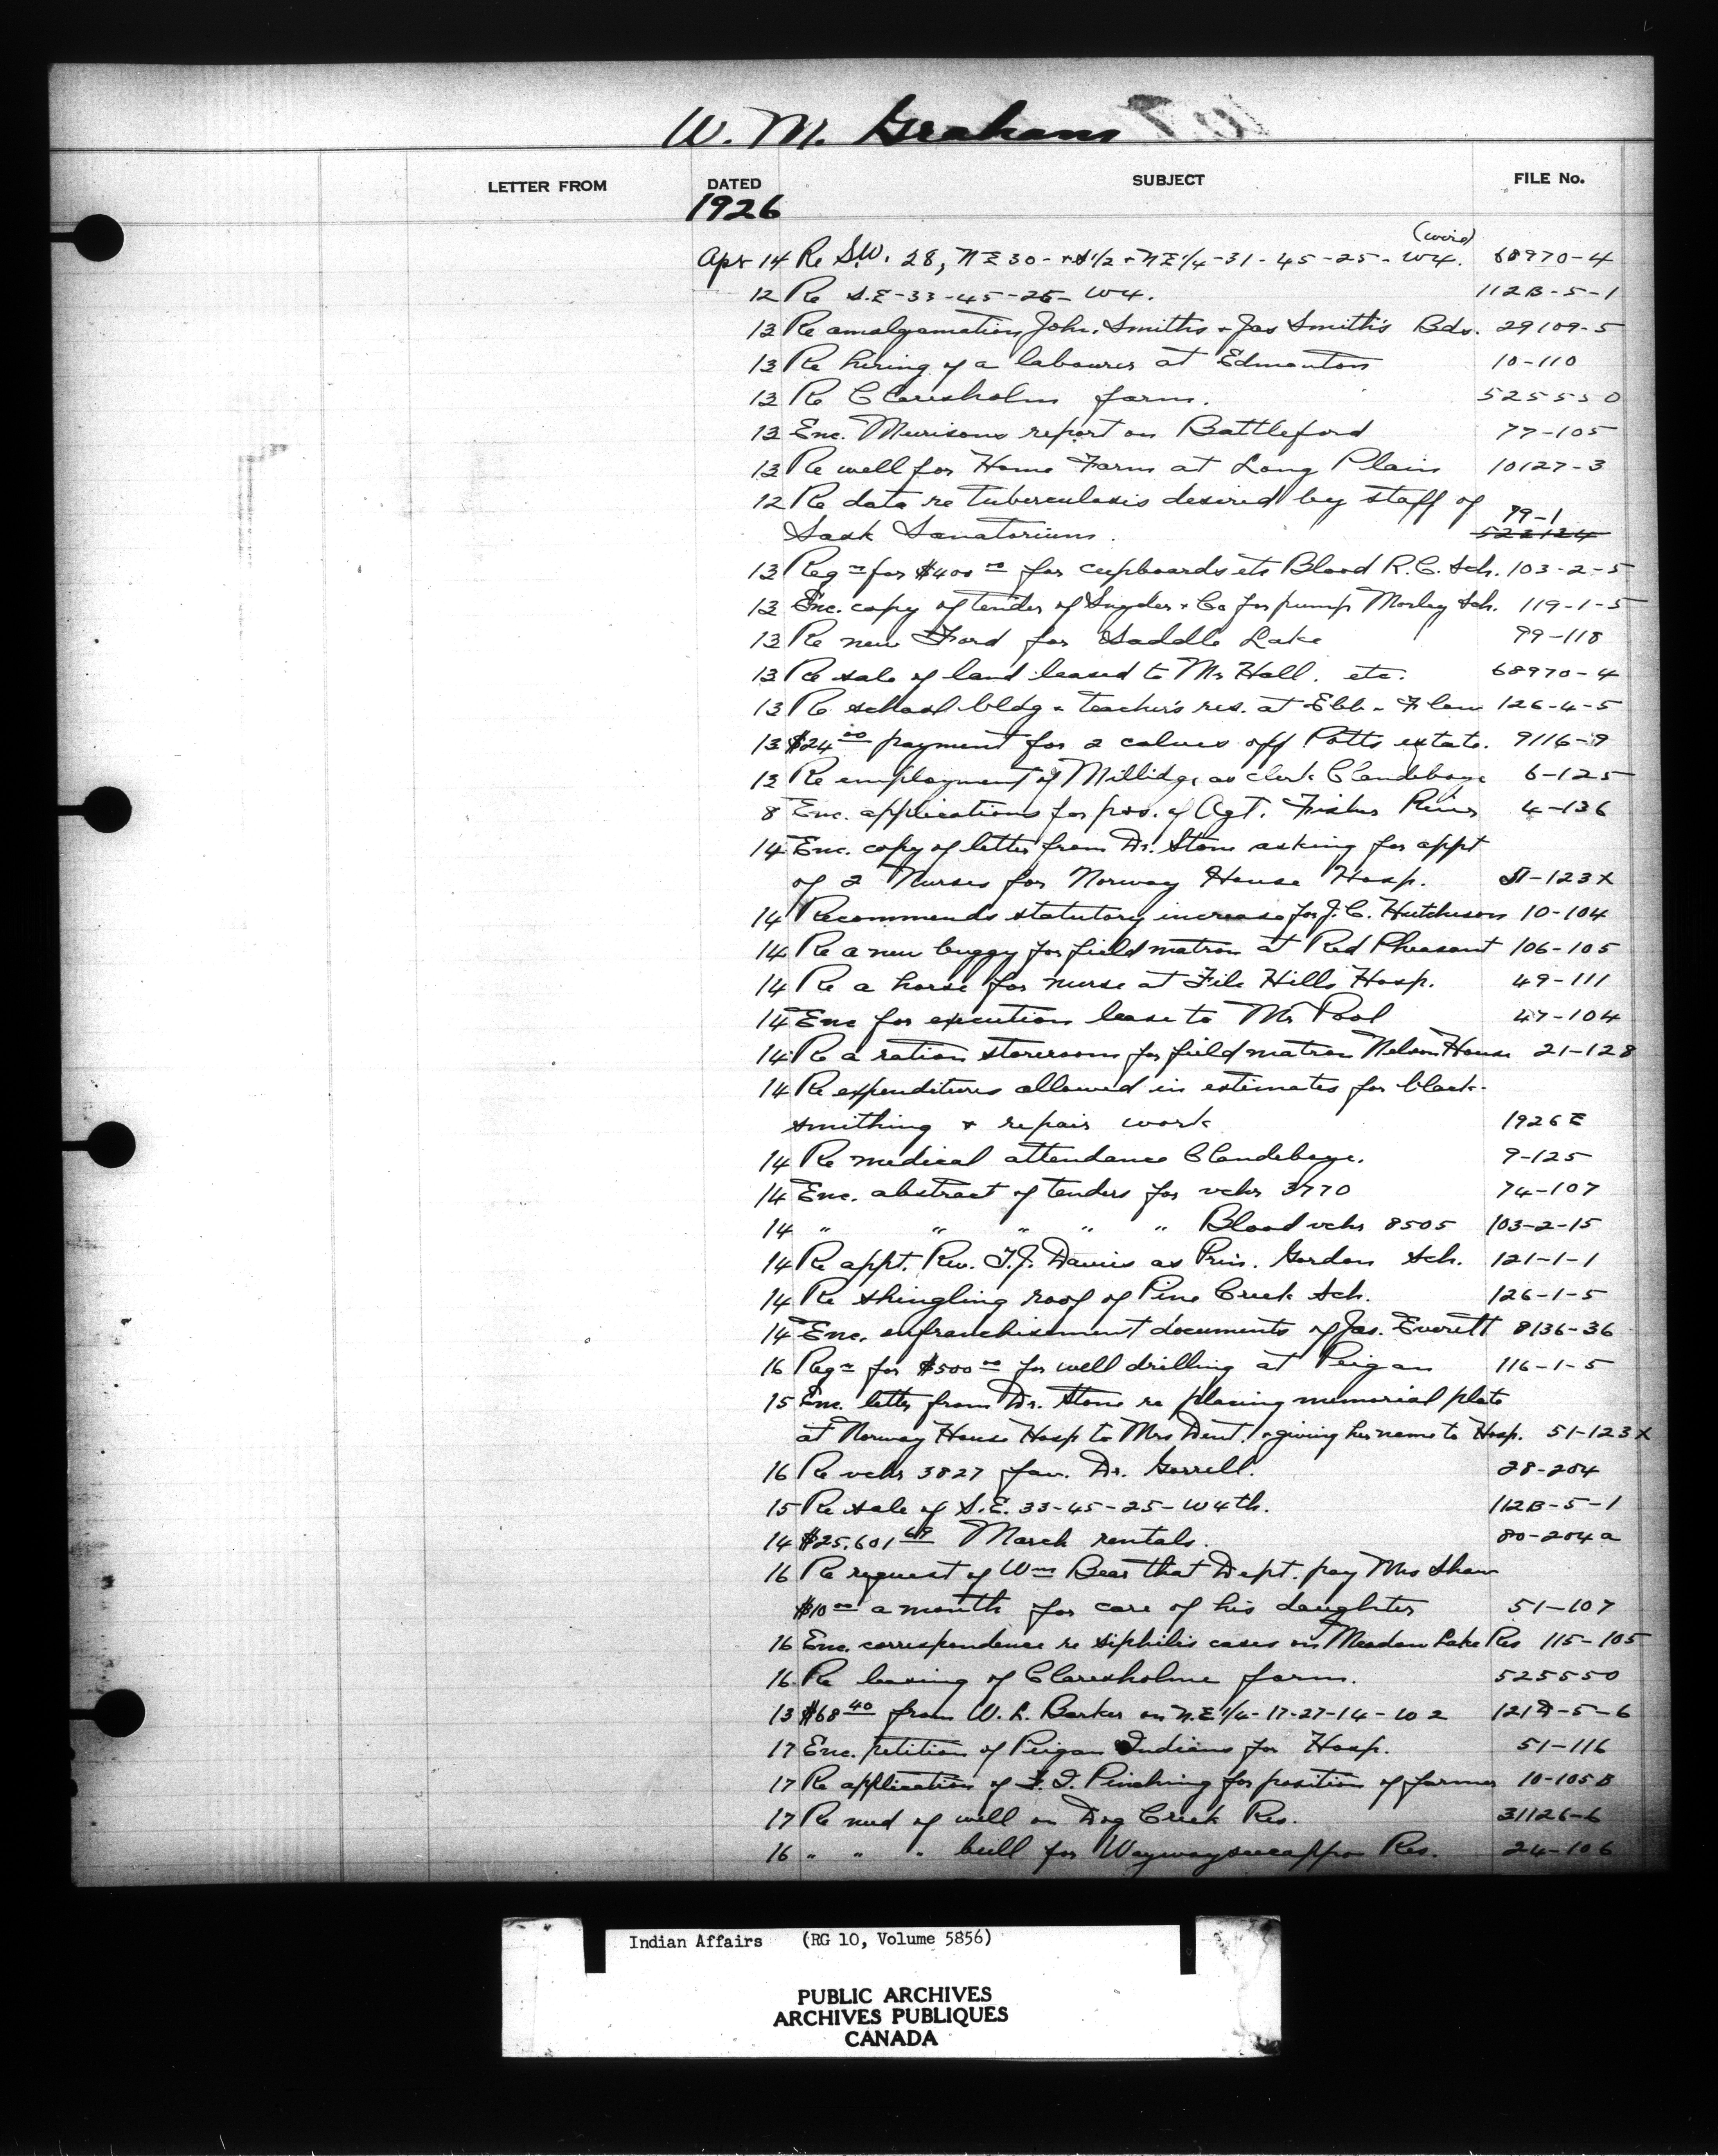 W. M. Graham
LETTER FROM DATED SUBJECT FILE No.
1926
(wire)
Apr 14 Re S.W. 28, N E 30 - + S1/2 + N E 1/4 - 31 - 45 - 25 - W4. 68970-4
12 Re S.E - 33 - 45 - 25 - W4. 112B-5-1
13 Re amalgamation John Smiths + Jas Smith's Bds. 29109-5
13 Re hiring of a labourer at Edmonton 10-110
13 Re Claresholm farm. 525550
13 Enc. Murisons report on Battleford 77-105
13 Re well for Home Farm at Long Plain 10127-3
12 Re data re tuberculosis desired by staff of
Sask Sanatorium. 79-1
522124
13 Reqn for $400 00 for cupboards etc Blood R.C. Sch. 103-2-5
13 Enc. copy of tender of Snyder + Co for pump Morley Sch. 119-1-5
13 Re new Ford for Saddle Lake 99-118
13 Re sale of land leased to Mr Hall. etc. 68970-4
13 Re school bldg + teacher's res. at Ebb + Flow 126-4-5
13 $24 00 payment for 2 calves off Potts estate. 9116-9
13 Re employment of Millidge as clerk Clandeboye 6-125
8 Enc. applications for pos. of Agt. Fisher River 4-136
14 Enc. copy of letter from Dr. Stone asking for appt
of 2 Nurses for Norway House Hosp. 51-123x
14 Recommends statutory increase for J.C. Hutchison 10-104
14 Re a new buggy for field matron at Red Pheasant 106-105
14 Re a horse for nurse at File Hills Hosp. 49-111
14 Enc for execution lease to Mr Pool 47-104
14 Re a ration storeroom for field matron Nelson House 21-128
14 Re expenditures allowed in estimates for black-
smithing + repair work 1926 E
14 Re medical attendance Clandeboye. 9-125
14 Enc. abstract of tenders for vchr 3770 74-107
14 " " " " " Blood vchr 8505 103-2-15
14 Re appt. Rev. T.J. Davies as Prin. Gordon Sch. 121-1-1
14 Re shingling roof of Pine Creek Sch. 126-1-5
14 Enc. enfranchisement documents of Jas. Everett 8136-36
16 Reqn for $500 00 for well drilling at Peigan 116-1-5
15 Enc. letter from Dr. Stone re placing memorial plate
at Norway House Hosp to Mrs Dent. + giving her name to Hosp. 51-123x
16 Re vchr 3827 fav. Dr. Gorrell. 28-204
15 Re sale of S.E. 33-45-25-W4th. 112B-5-1
14 $25,601 69 March rentals. 80-204a
16 Re request of Wm Bear that Dept. pay Mrs Shaw
$10 00 a month for care of his daughter 51-107
16 Enc. correspondence re siphilis cases on Meadow Lake Res 115-105
16 Re leasing of Claresholme farm. 525550
13 $68 40 from W. L. Barker on N.E 1/4-17-27-14-W 2 121D-5-6
17 Enc. petition of Peigan Indians for Hosp. 51-116
17 Re application of Pinching for position of farmer 10-105B
17 Re need of well on Dog Creek Res. 31126-6
16 " " " bull for Waywayseecappo Res. 24-106
Indian Affairs (RG 10, Volume 5856)
PUBLIC ARCHIVES
ARCHIVES PUBLIQUES
CANADA